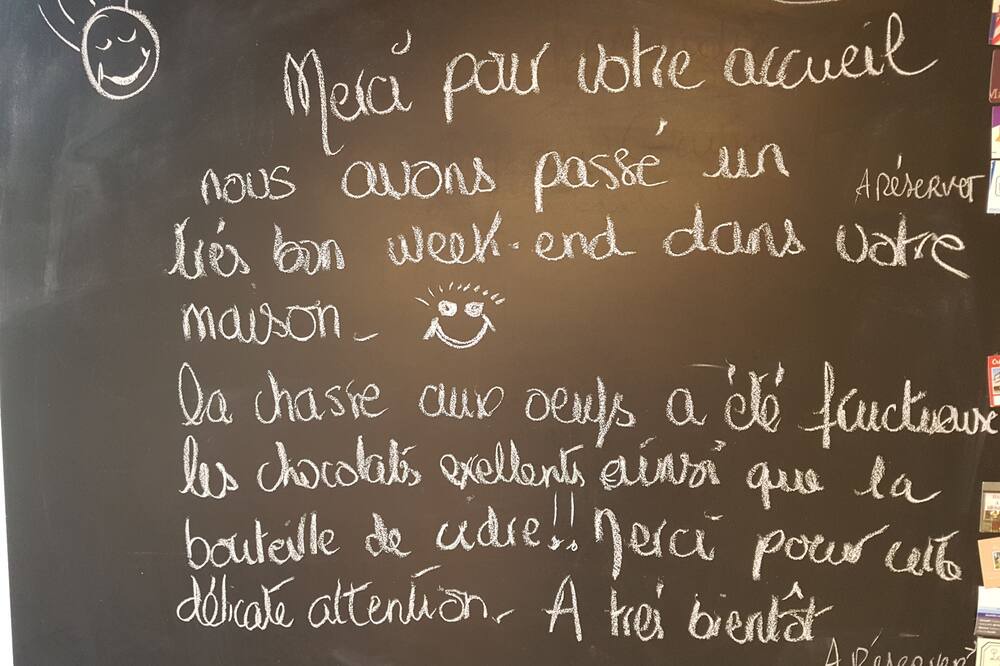 Merci pour votre accueil
nous avons passé un
A RÉSERVER
très bon week-end dans votre
maison -
la chasse aux oeufs a été fructueuse
les chocolats exellents ainsi que la
bouteille de cidre!! Merci pour cette
délicate attention - A très bientôt
A Réserver